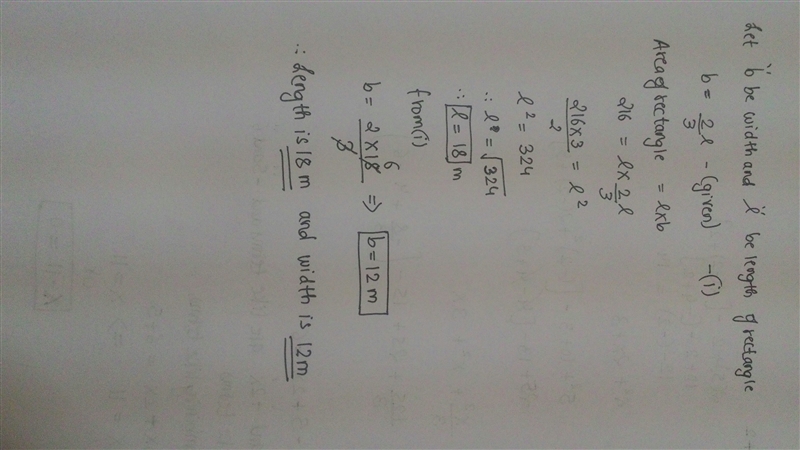 Let 'b' be width and 'l' be length of rectangle
b = 2/3 l - (given) - (i)
Area of rectangle = l×b
216 = l × 2/3 l
216×3/2 = l²
l² = 324
∴ l = √324
∴ l = 18 m
from (i)
b = 2 × 18/3 6 ⇒ b = 12 m
∴ Length is 18 m and width is 12 m